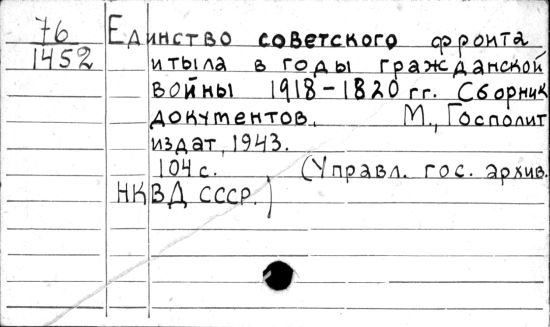 76
1452
Единство советского фронта
и тыла в годы гражданской
войны 1918-1820 гг. Сборник
документов. М., Госполит
издат, 1943.
104 с. (Управл. гос. архив.
НКВД СССР.)